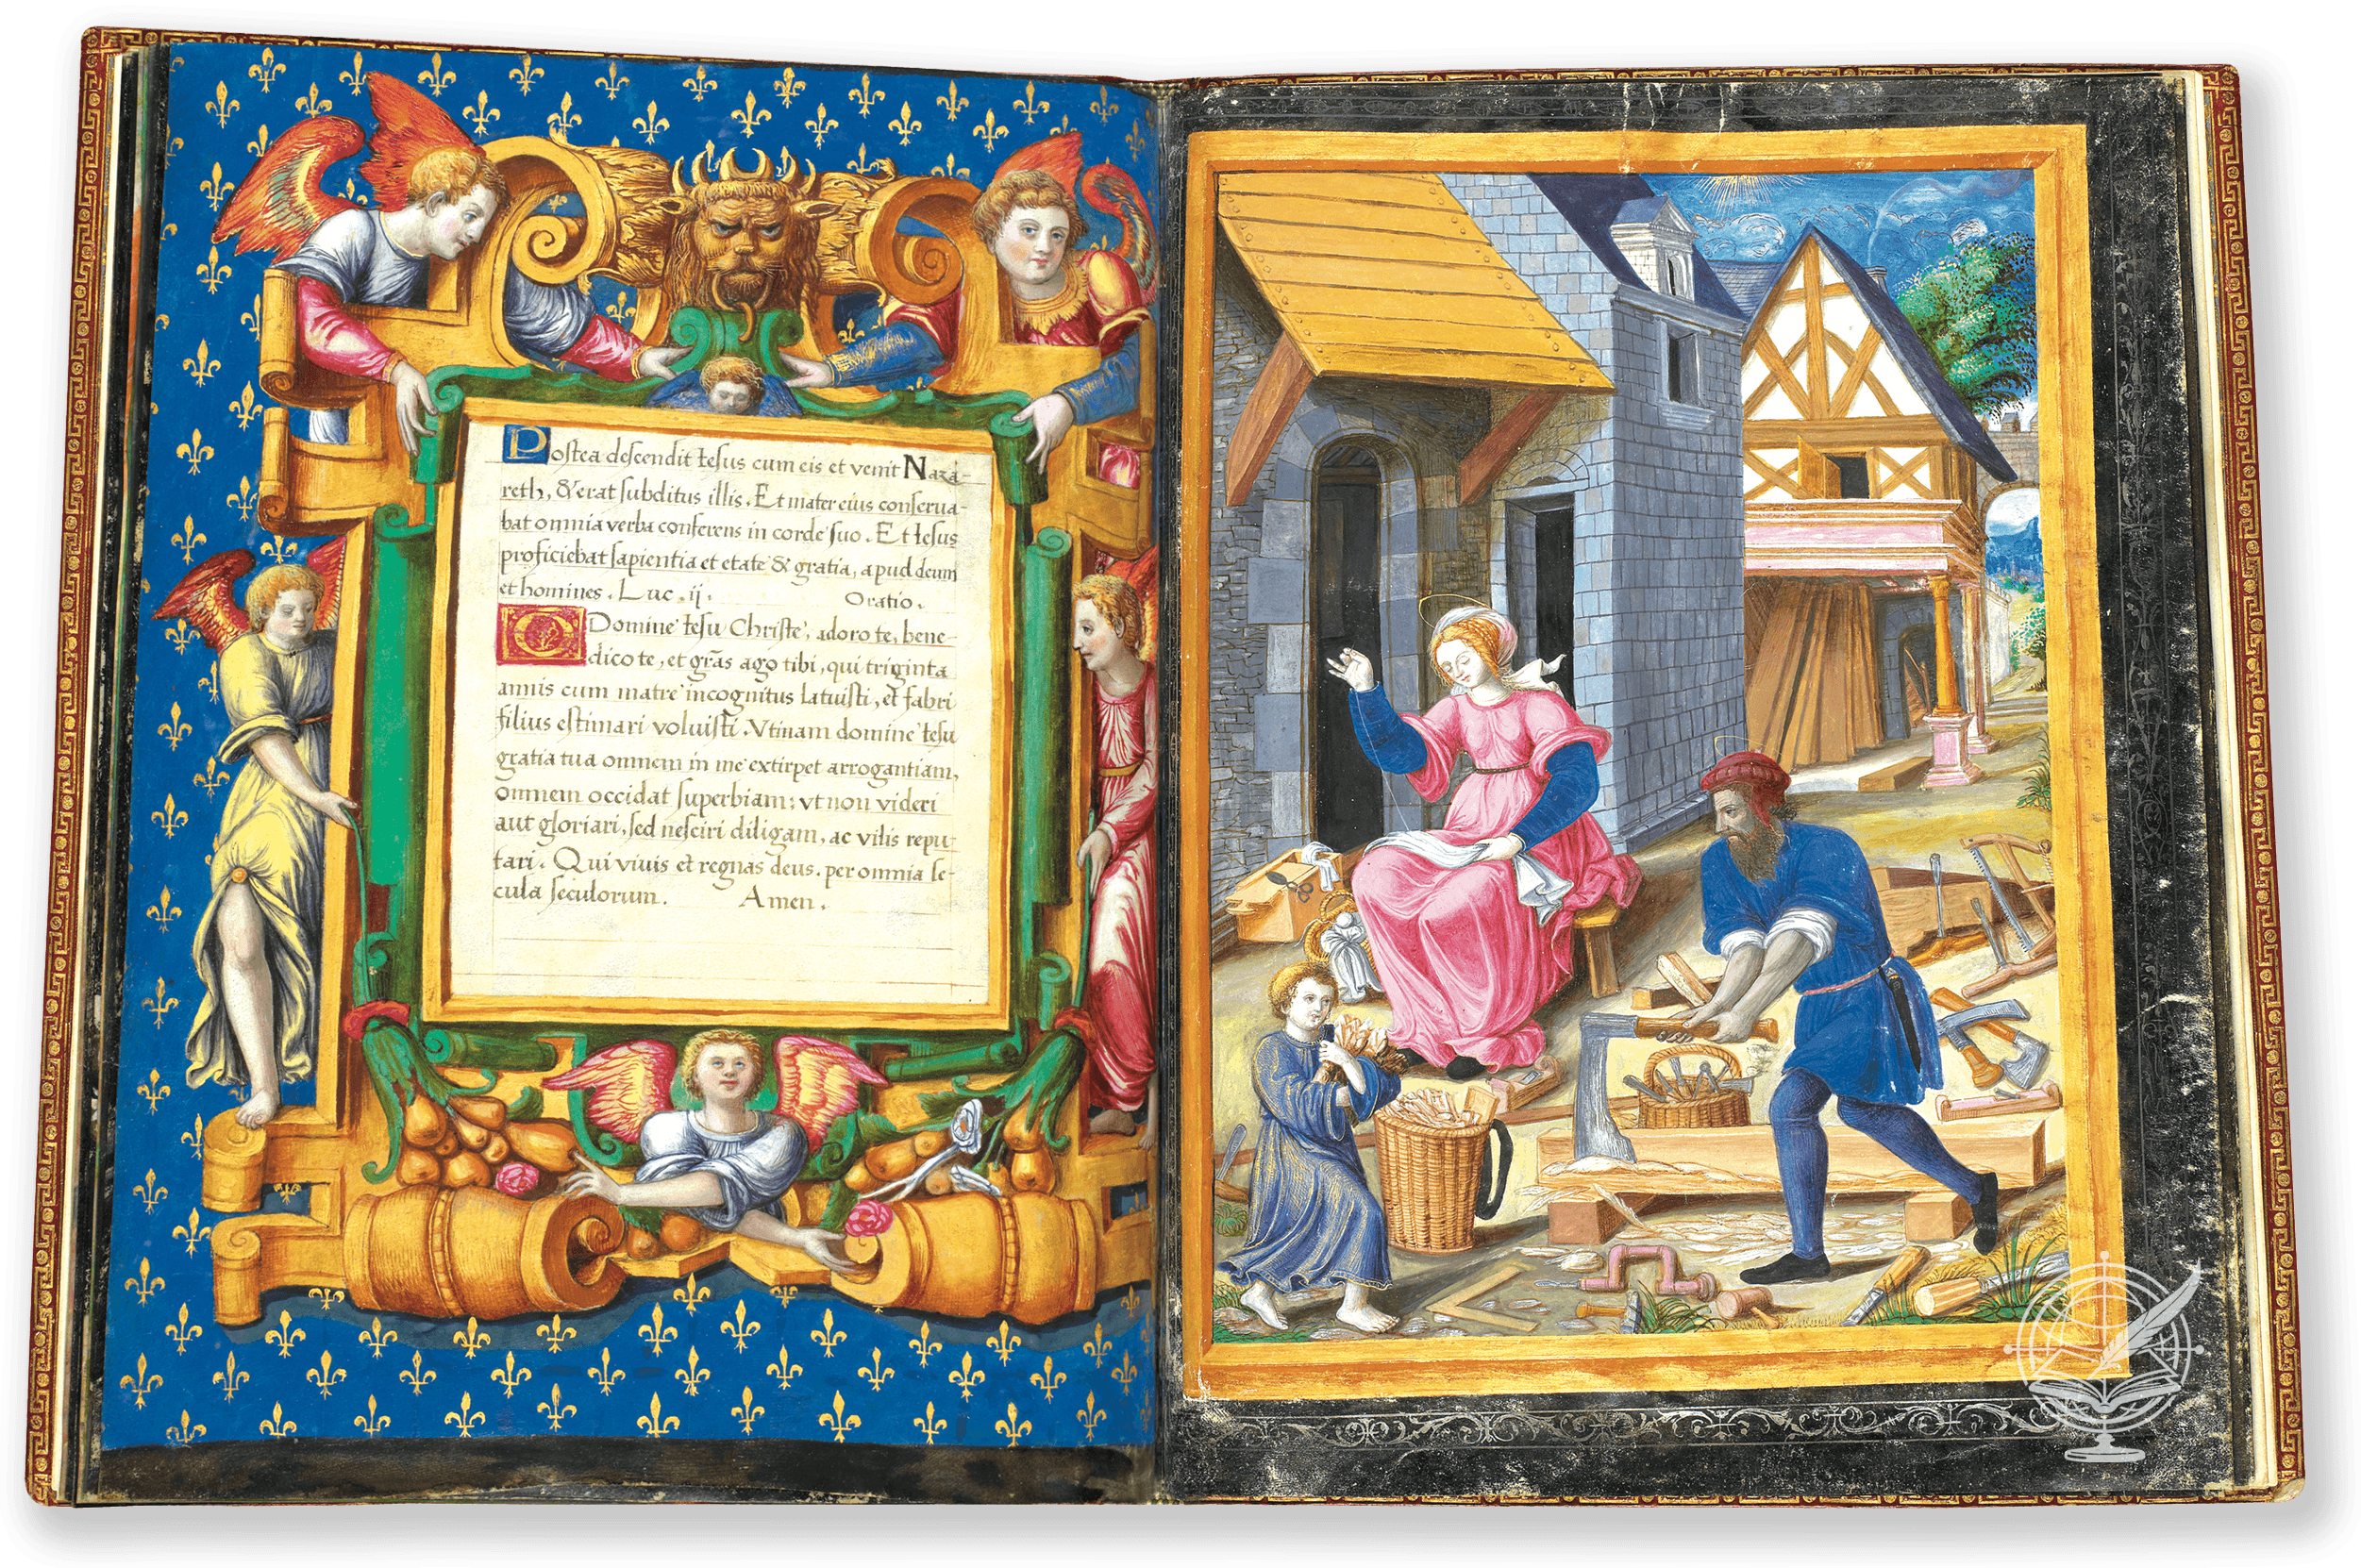 Postea descendit Iesus cum eis et venit Naza-
reth, & erat subditus illis. Et mater eius conserua-
bat omnia verba conferens in corde suo. Et Iesus
proficiebat sapientia et etate & gratia, apud deum
et homines. Luc. ij. Oratio.
O Domine Iesu Christe, adoro te, bene-
dico te, et grãs ago tibi, qui triginta
annis cum matre incognitus latuisti, et fabri
filius estimari voluisti. Vtinam domine Iesu
gratia tua omnem in me extirpet arrogantiam,
omnem occidat superbiam: vt non videri
aut gloriari, sed nesciri diligam, ac vilis repu-
tari. Qui viuis et regnas deus. per omnia se-
cula seculorum. Amen.